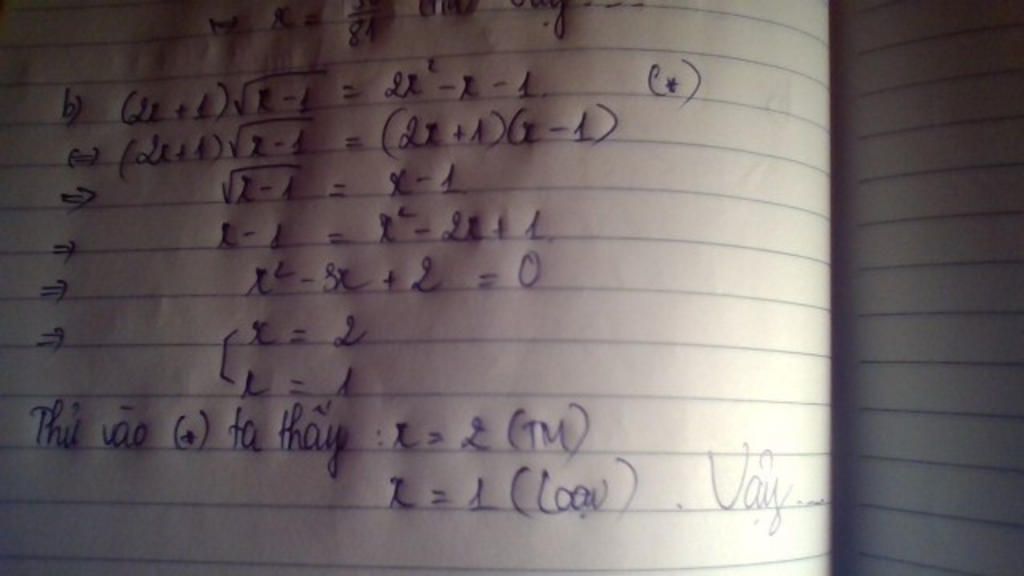 ⇔ x = /81 (TM) Vậy....
b) (2x+1)√x-1 = 2x² - x - 1. (*)
⇔ (2x+1)√x-1 = (2x+1)(x-1)
⇒ √x-1 = x-1
⇒ x-1 = x² - 2x + 1.
⇒ x² - 3x + 2 = 0
⇒ [ x = 2
x = 1
Thử vào (*) ta thấy : x = 2 (TM)
x = 1 (loại) . Vậy....